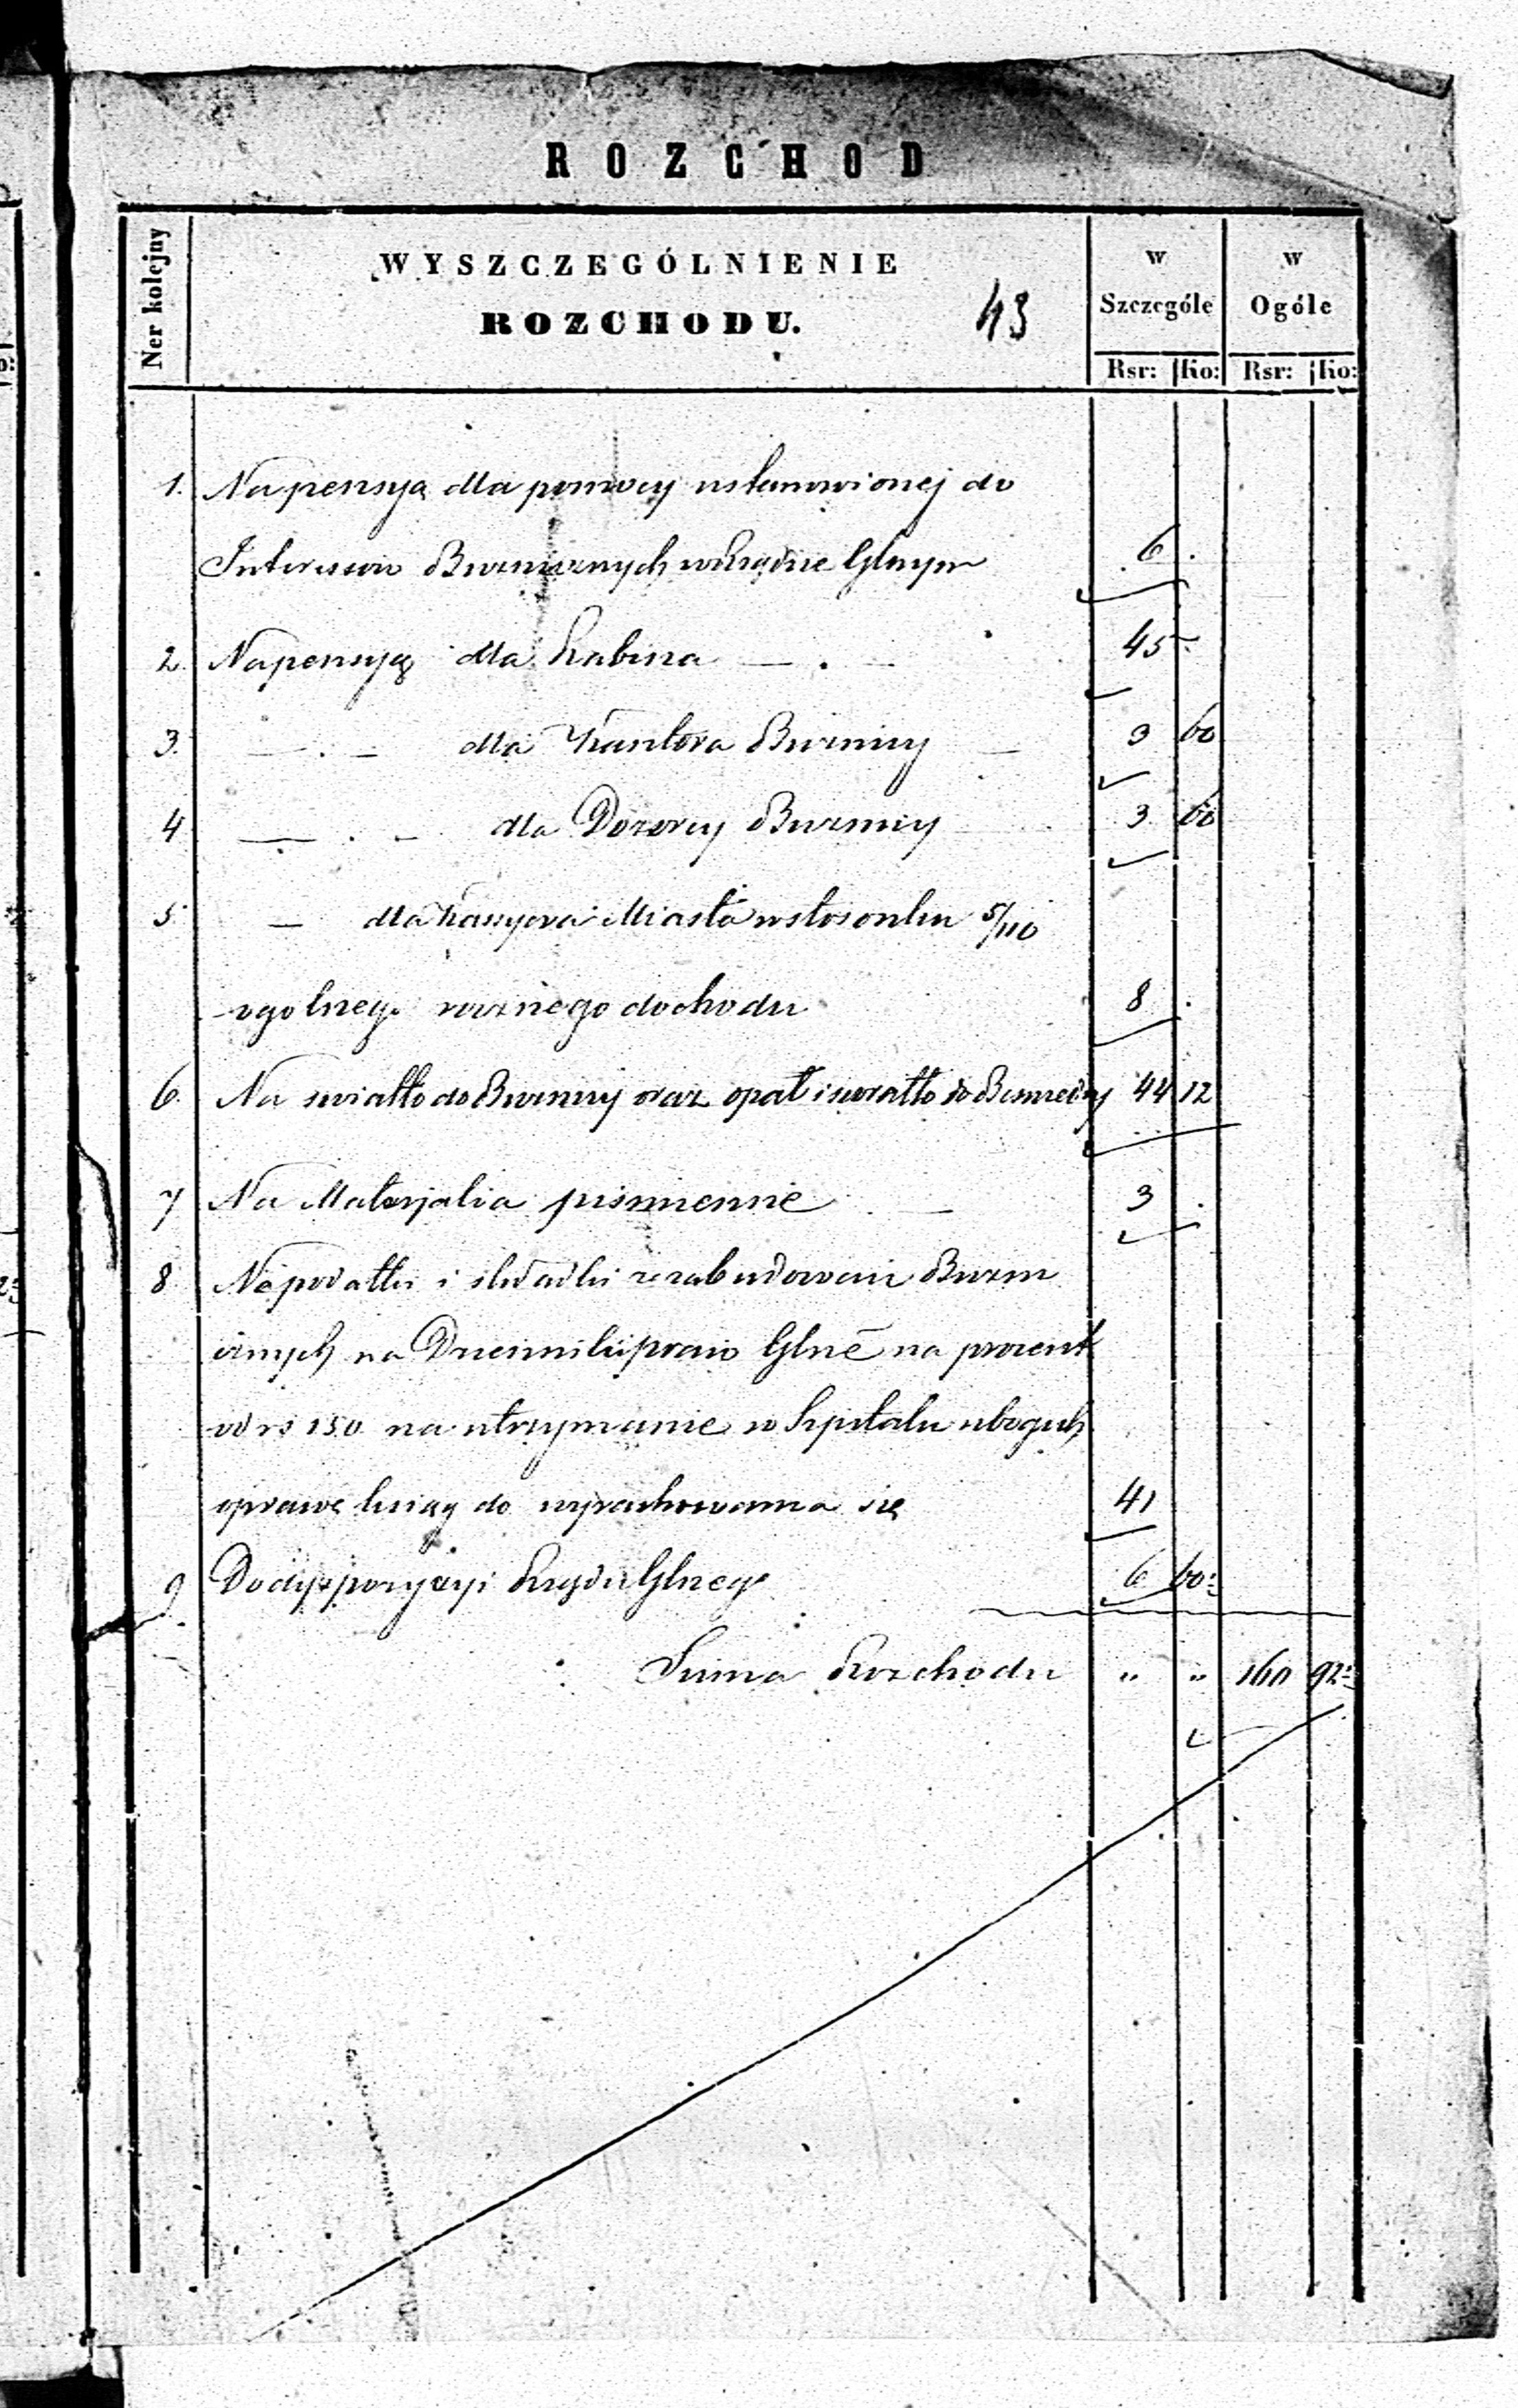 ROZCHOD
Ner kolejny
WYSZCZEGÓLNIENIE
ROZCHODU.
43
w Szczególe
w Ogóle
Rsr: Ko: Rsr: Ko:
1. Na pensyą dla pomocy ustanowionej do
Interessow Buznicznych w Urzędzie Glnym 6 .
2. Na pensyą dla Rabina — . — 45 -
3. — . — dla Kantora Buznicy — 3 60
4 — . — dla Dozorcy Buznicy 3 60
5 — dla Kassyera Miasta w stosonku 5/110
ogolnego rocznego dochodu 8 .
6. Na swiatło do Buznicy oraz opał i swiatło do 44 12
7 Na Materjalia pismienne — 3 .
8 Na podatki i składki z zabudowań Buzni
cznych na Glne na procent
od rs 150 na utrzymanie w Szpitalu ubogich
oprawę ksiąg do wyrachowania się 41
9 Do dyspozycyi Urzędu Glnego 6 60:
Suma Rozchodu " " 160 92: